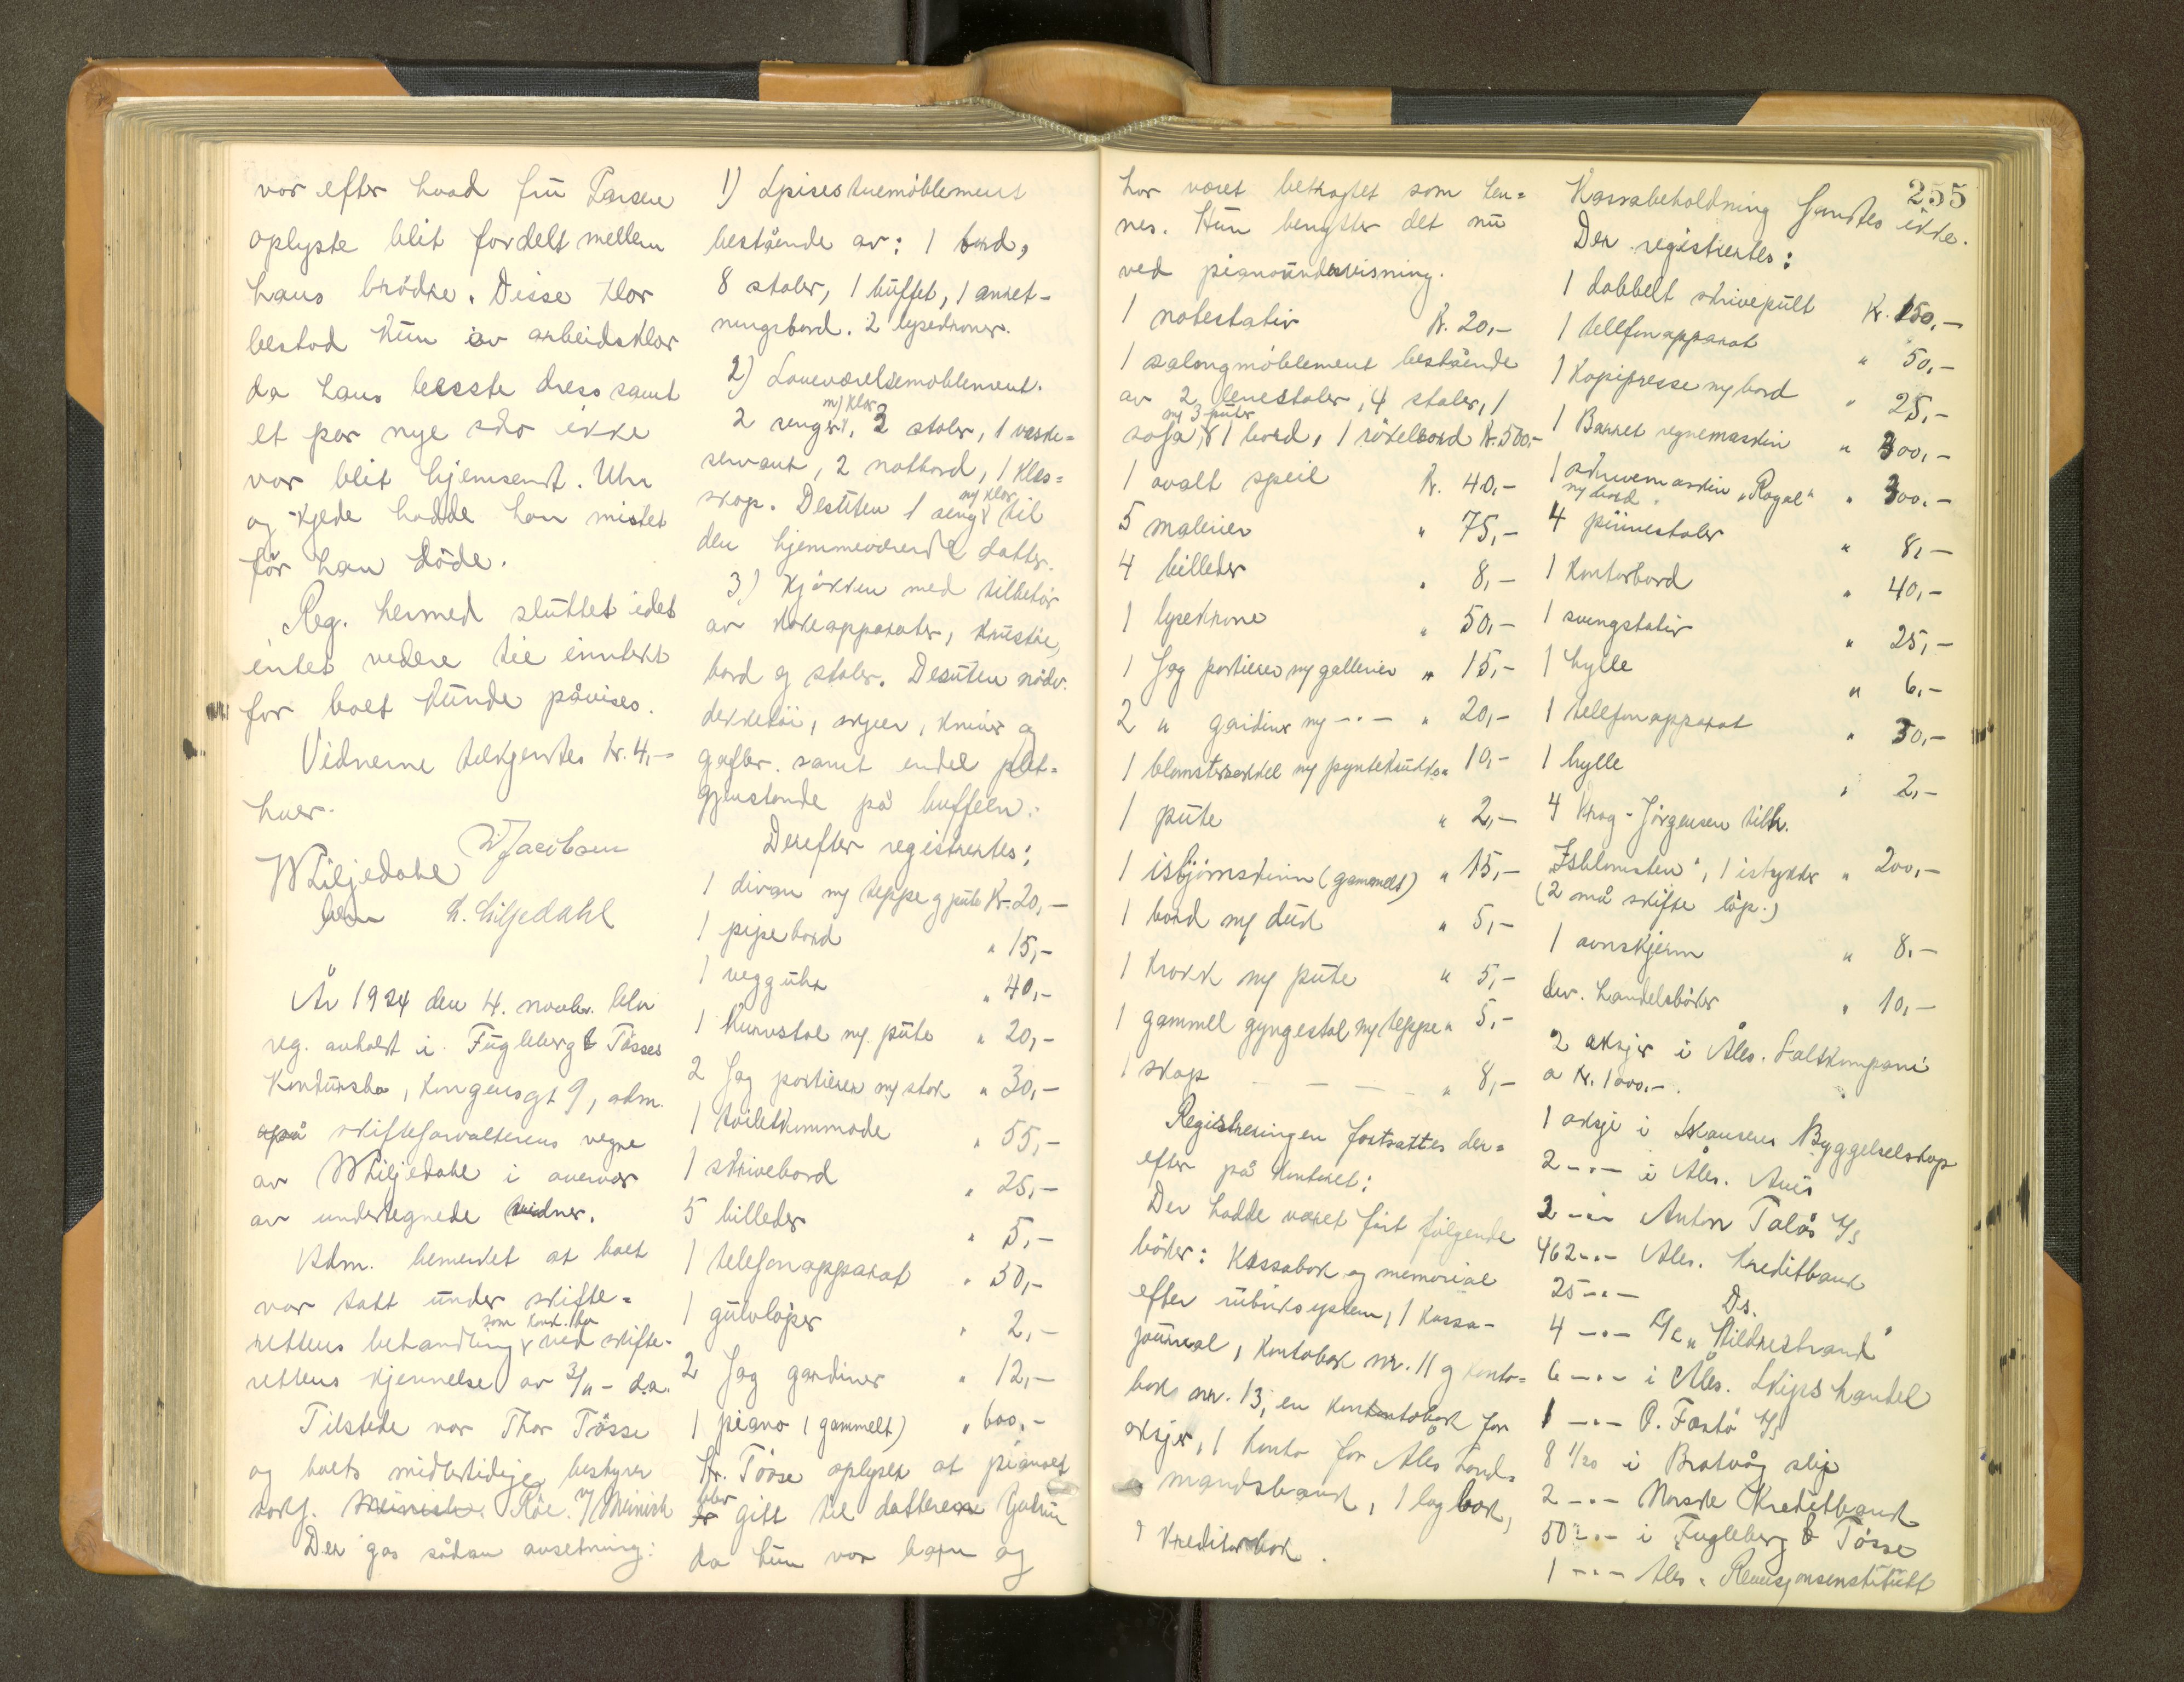 var efter hvad fru Larsen
oplyste blit fordelt mellem
hans brödre. Disse klær
bestod kun av arbeidsklær
da hans beste dress samt
et par nye sko ikke
var blit hjemsendt. Uhr
og kjede hadde han mistet
för han döde.
Reg. hermed sluttet idet
intet videre til inntekt
for boet kunde påvises.
Vidnerne tilkjentes kr. 4,-
hver.
Jacobsen
W Liljedahl
L. Liljedahl
År 1924 den 4. novbr. blev
reg. avholdt i Fugleberg & Tösses
konkursbo, Kongensgt 9, adm.
på skifteforvalterens vegne
av W Liljedahl i overvær
av undertegnede vidner.
Adm. bemerket at boet
var tatt under skifte=
rettens behandling som konk.bo ved skifte-
rettens kjennelse av 3/11 - d.a.
Tilstede var Thor Tösse
og boets midlertidige bestyrer
sakf. Röe.
Der gas sådan avsetning:
1) Spisestuemöblement
bestående av: 1 bord,
8 stoler, 1 buffet, 1 anret-
ningsbord. 2 lysekroner.
2) Soveværelsemöblement.
2 senger m/ klær, 2 stoler, 1 vaske=
servant, 2 natbord, 1 klæs=
skap. Desuten 1 seng m/ klær til
den hjemmeværende datter.
3) Kjökken med tilbehör
av kokeapparater, krustöi,
bord og stoler. Desuten nödv.
dekketöi, skjeer, kniver og
gafler samt endel plet=
gjenstande på buffeen.
Derefter registrertes:
1 divan m/ teppe og pute Kr. 20,-
1 pipebord " 15,-
1 vegguhr " 40,-
1 kurvstol m/ pute " 20,-
2 fag portierer m/ stok " 30,-
1 toiletkommode " 55,-
1 skrivebord " 25,-
5 billeder " 5,-
1 telefonapparat " 30,-
1 gulvlöper " 2,-
2 fag gardiner " 12,-
1 piano (gammelt) " 600,-
Hr. Tösse oplyser at pianoet
blev gitt til datteren
da hun var barn og
har været betragtet som hen=
nes. Hun benytter det nu
ved pianoundervisning.
1 notestativ Kr. 20,-
1 salongmöblement bestående
av 2 lenestoler, 4 stoler, 1
sofa m/ 3 puter, 1 bord, 1 rökebord Kr. 500,-
1 ovalt speil Kr. 40,-
5 malerier " 75,-
4 billeder " 8,-
1 lysekrone " 50,-
1 fag portierer m/ gallerier " 15,-
2 " gardiner m/ -"- " 20,-
1 blomstersokkel m/ pyntekrukke " 10,-
1 pute " 2,-
1 isbjörnskinn (gammelt) " 15,-
1 bord m/ duk " 5,-
1 krakk m/ pute " 5,-
1 gammel gyngestol m/ teppe " 5,-
1 skap - - - " 8,-
Registreringen fortsattes der=
efter på kontoret:
Der hadde været fört fölgende
böker: Kassabok og memorial
efter rubriksystem, 1 kassa-
journal, kontobok nr. 11 og konto=
bok nr. 13, en kontobok for
aksjer, 1 konto for Ales. Land=
mandsbank, 1 lagbok,
1 kreditorbok.
255
Kassabeholdning fandtes ikke.
Der registrertes:
1 dobbelt skrivepult Kr. 150,-
1 tellfonapparat " 50,-
1 kopipresse m/ bord " 25,-
1 Barret regnemaskin " 300,-
1 skrivemaskin „Royal" m/ bord " 300,-
4 pinnestoler " 8,-
1 kontorbord " 40,-
1 svingstativ " 25,-
1 hylle " 6,-
1 telefonapparat " 30,-
1 hylle " 2,-
4 Krag-Jörgensen tilh.
Isblomsten", 1 istykker " 200,-
(2 må skifte löp.)
1 ovnskjerm " 8,-
div. handelsböker " 10,-
2 aksjer i Åles. Saltkompani
a Kr. 1000,-.
1 aksje i Skansens Byggelselskap
2 -"- i Åles. Avis
2 -"- Anton Talås A/S
462 -"- Ales. Kreditbank
25 -"- Ds.
4 -"- A/S „Hildrestrand"
6 -"- i Åles. Skipshandel
1 -"- O. Fastö A/S
8 1/20 i Bratvåg slip
2 -"- Norske Kreditbank
50 -"- i Fugleberg & Tösse
1 -"- Ales. Revisjonsinstitutt